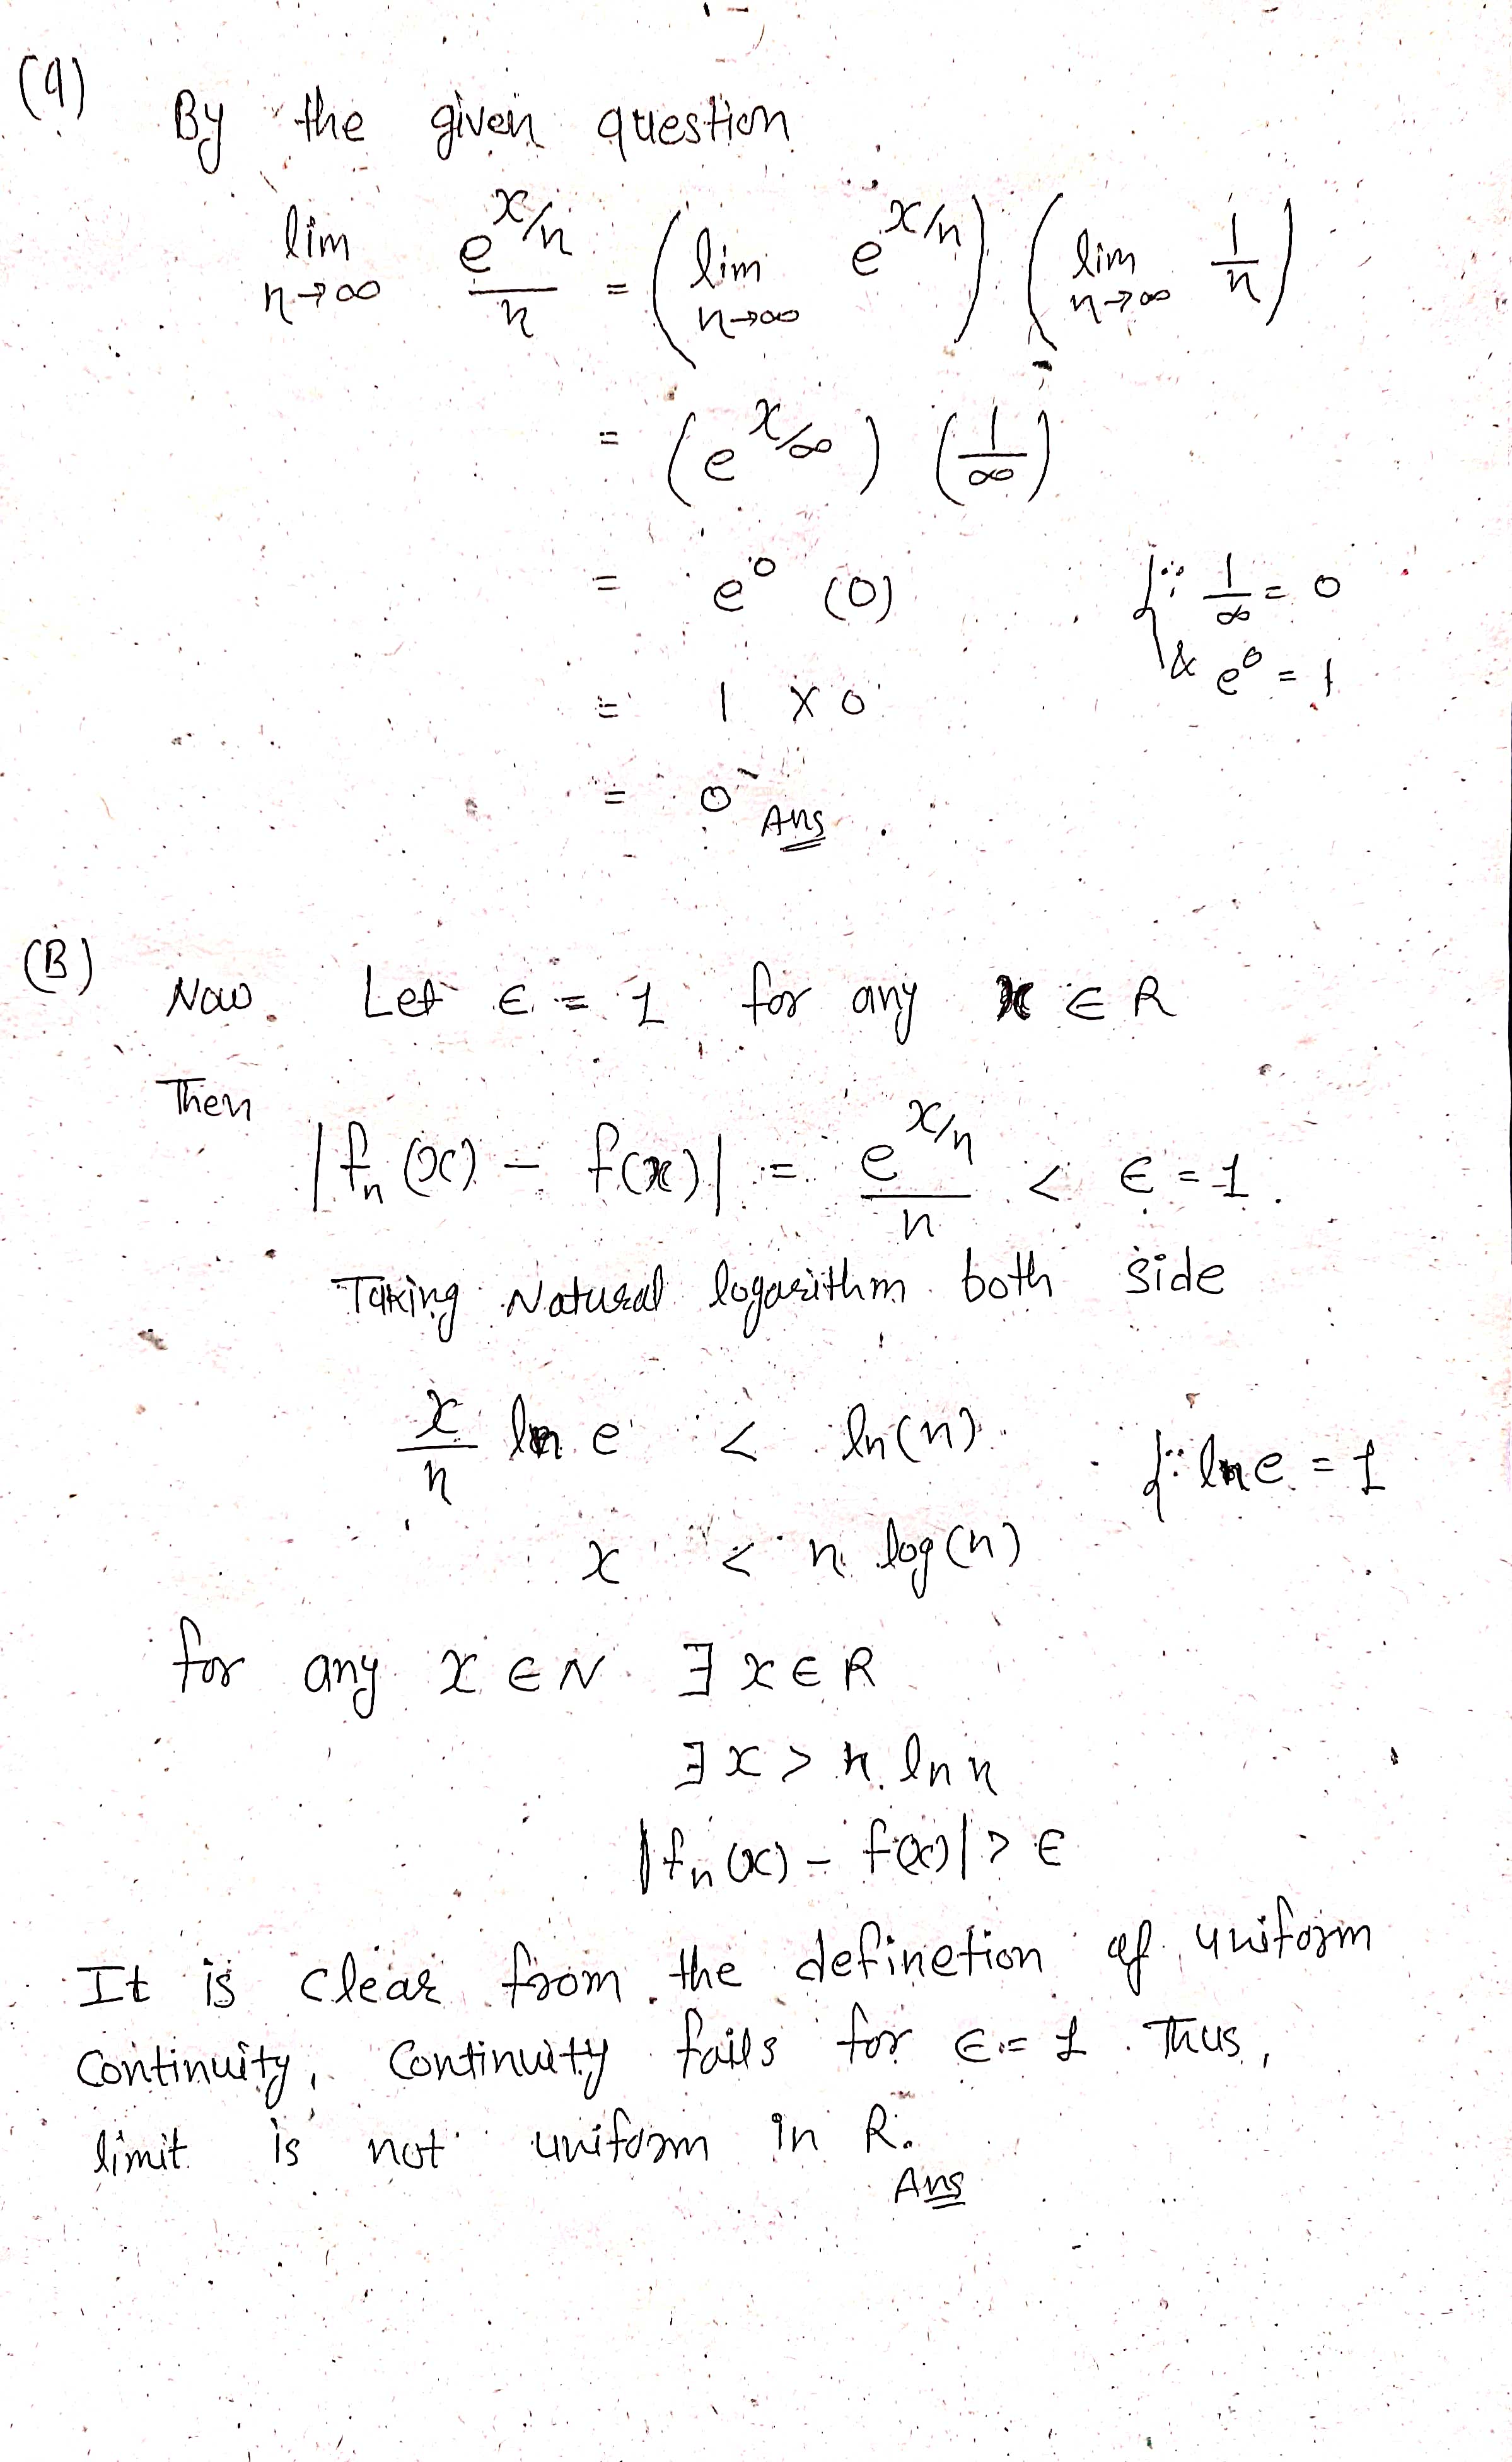 (a)
By the given question
lim n→∞ e^{x/n}/n = (lim n→∞ e^{x/n}) (lim n→∞ 1/n)
= (e^{x/∞}) (1/∞)
= e^0 (0) {∵ 1/∞ = 0
& e^0 = 1
= 1 × 0
= 0 Ans
(B)
Now. Let ϵ = 1 for any x ∈ R
Then
|fn(x) - f(x)| = e^{x/n}/n < ϵ = 1.
Taking Natural logarithm both side
x/n ln e < ln(n) {∵ ln e = 1
x < n log(n)
for any x ∈ N ∃ x ∈ R
∃ x > n ln n
|fn(x) - f(x)| > ϵ
It is clear from the definetion of uniform
continuity, continuity fails for ϵ = 1. Thus,
limit is not uniform in R.
Ans